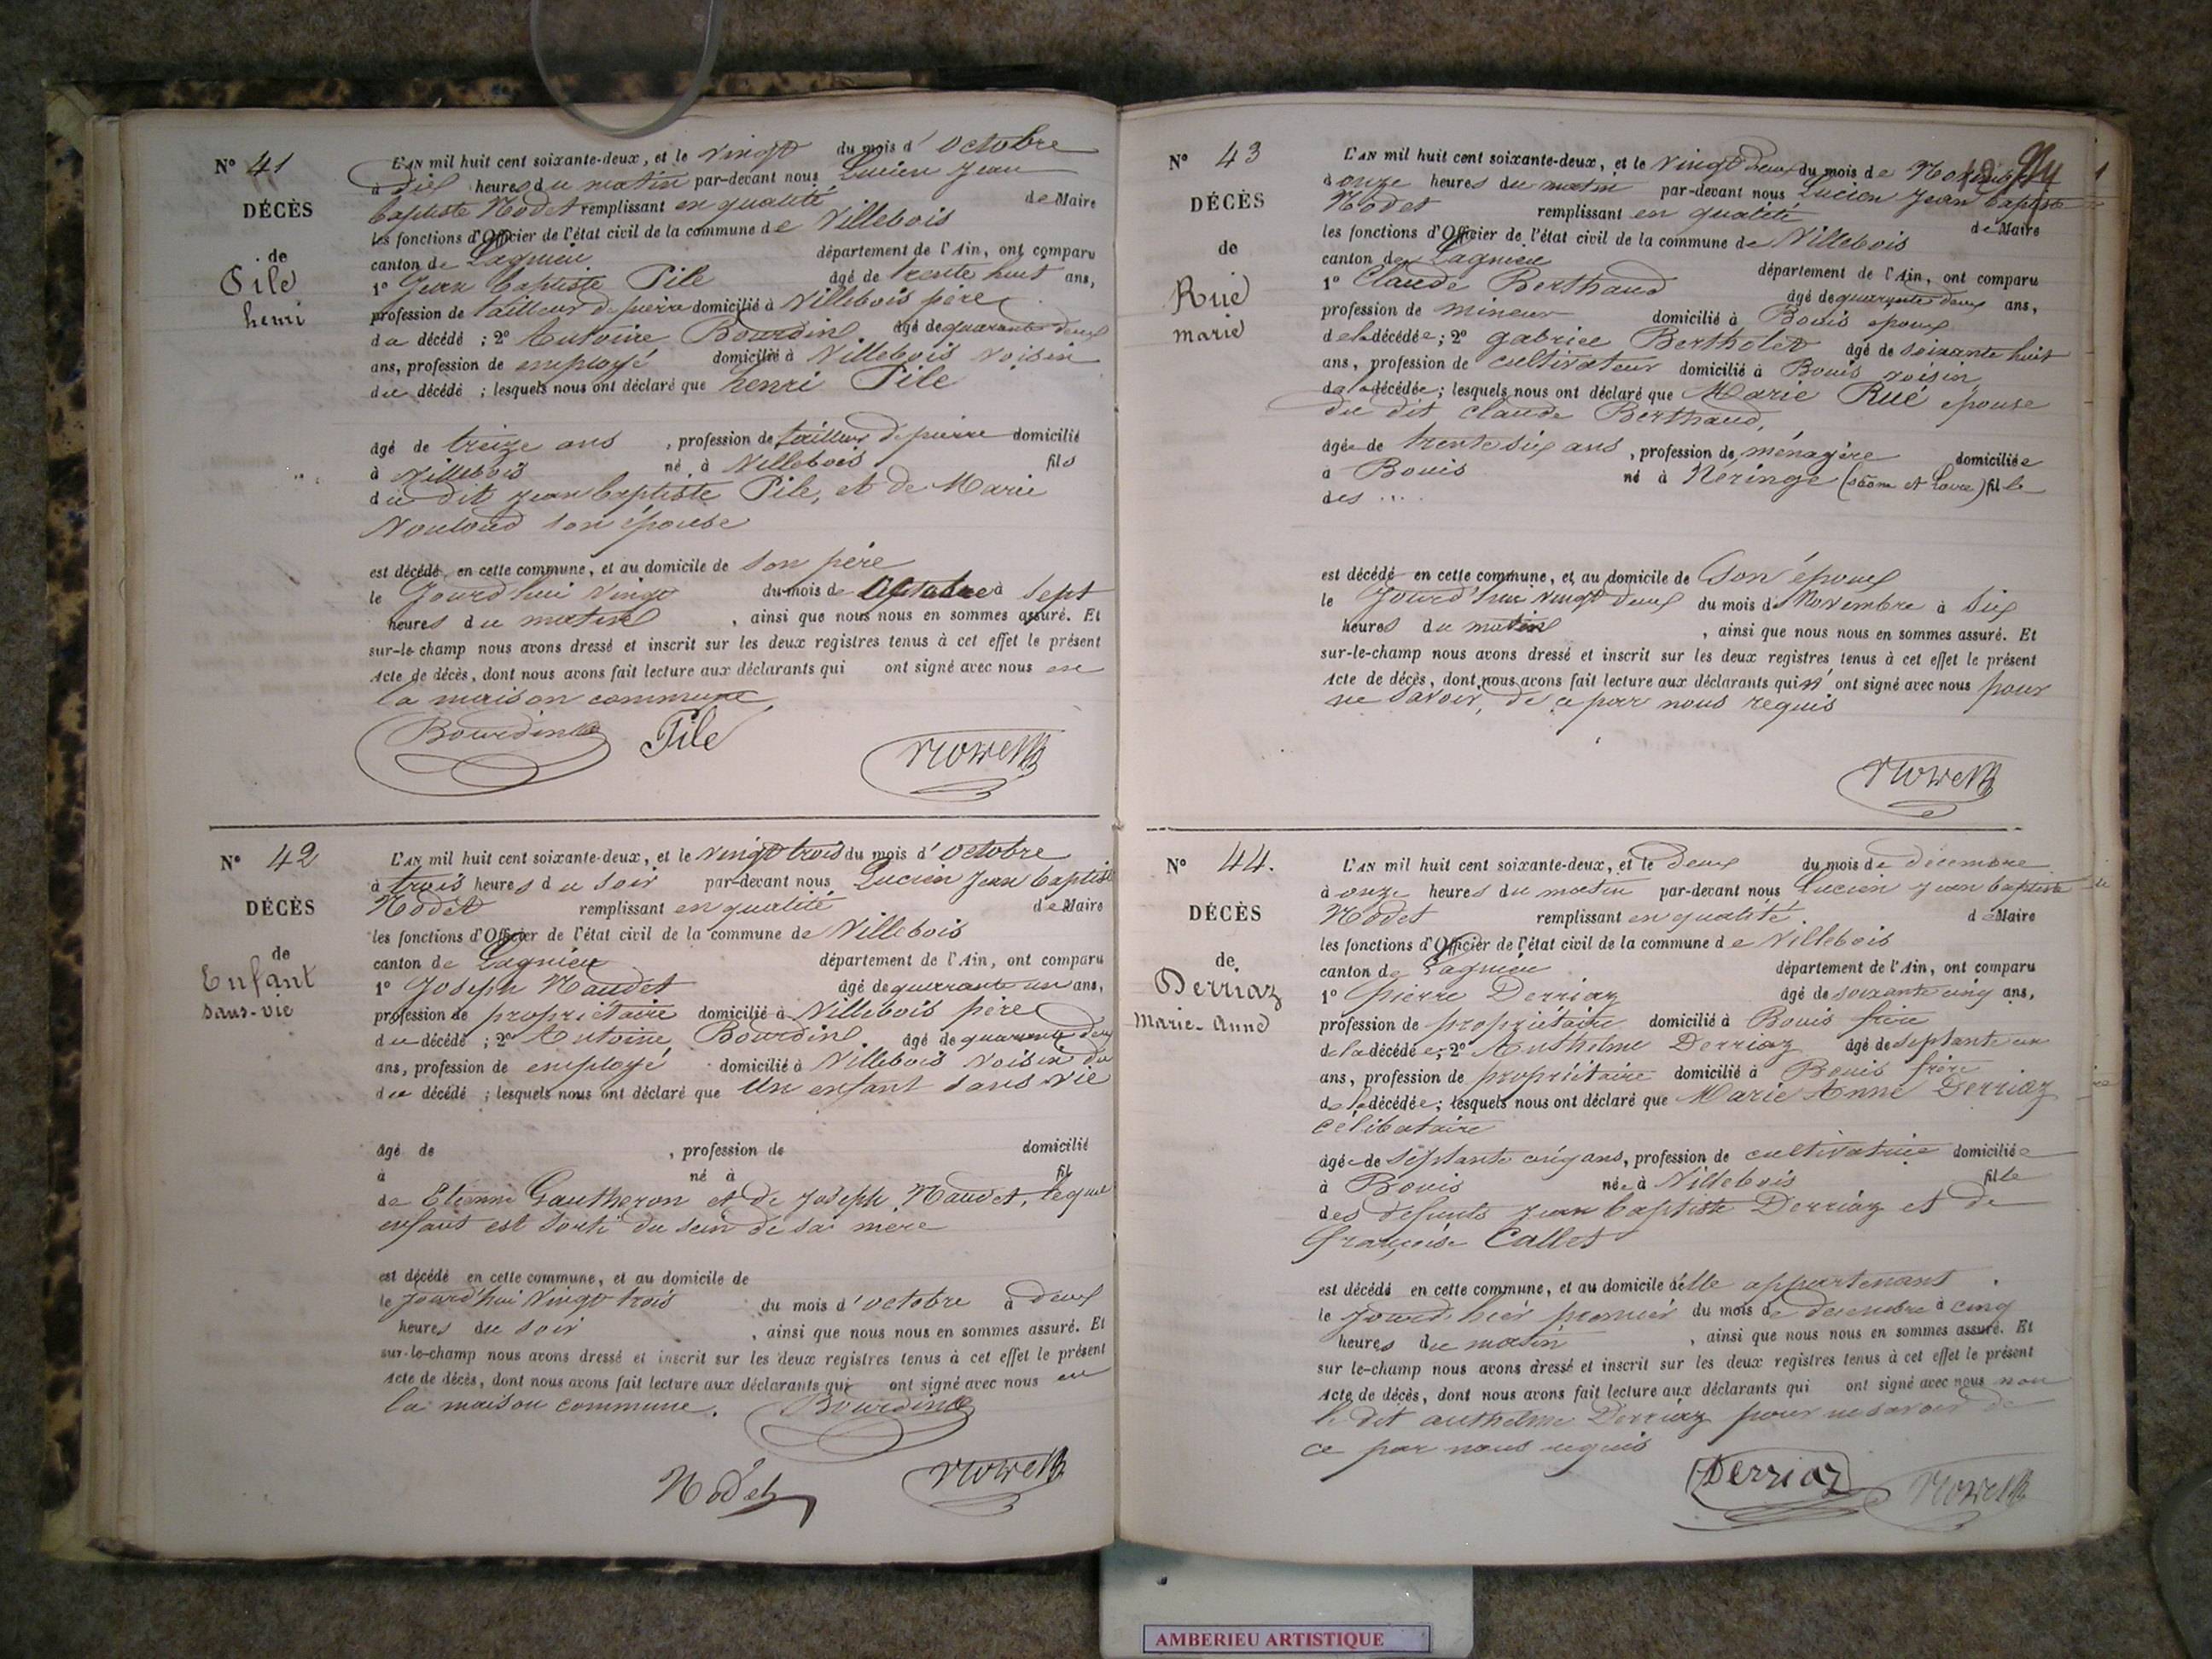 N° 41
DÉCÈS
de
Pile
henri
L'AN mil huit cent soixante-deux, et le vingt du mois d'octobre
à dix heures du matin par-devant nous Lucien Jean
baptiste Nodet remplissant en qualité de Maire
les fonctions d'Officier de l'état civil de la commune de Villebois
canton de Lagnieu département de l'Ain, ont comparu
1° Jean baptiste Pile âgé de trente huit ans,
profession de tailleur de pierre domicilié à Villebois père
du décédé ; 2° Antoine Bourdin âgé de quarante deux
ans, profession de employé domicilié à Villebois voisin
du décédé ; lesquels nous ont déclaré que henri Pile
âgé de treize ans , profession de tailleur de pierre domicilié
à Villebois né à Villebois fils
du dit Jean baptiste Pile, et de Marie
son épouse
est décédé en cette commune, et au domicile de son père
le Jourd'hui vingt du mois de Octobre à sept
heures du matin , ainsi que nous nous en sommes assuré. Et
sur-le-champ nous avons dressé et inscrit sur les deux registres tenus à cet effet le présent
Acte de décès, dont nous avons fait lecture aux déclarants qui ont signé avec nous en
la maison commune
Bourdin Pile
N° 42
DÉCÈS
de
Enfant
sans-vie
L'AN mil huit cent soixante-deux, et le vingt trois du mois d'octobre
à trois heures du soir par-devant nous Lucien Jean baptiste
Nodet remplissant en qualité de Maire
les fonctions d'Officier de l'état civil de la commune de Villebois
canton de Lagnieu département de l'Ain, ont comparu
1° Joseph Naudet âgé de quarante un ans,
profession de propriétaire domicilié à Villebois père
du décédé ; 2° Antoine Bourdin âgé de quarante deux
ans, profession de employé domicilié à Villebois voisin du
du décédé ; lesquels nous ont déclaré que Un enfant sans vie
âgé de , profession de domicilié
à né à fil
de Etienne Gautheron et de Joseph Naudet, lequel
enfant est sorti du sein de sa mere
est décédé en cette commune, et au domicile de
le Jourd'hui vingt trois du mois d'octobre à deux
heures du soir , ainsi que nous nous en sommes assuré. Et
sur-le-champ nous avons dressé et inscrit sur les deux registres tenus à cet effet le présent
Acte de décès, dont nous avons fait lecture aux déclarants qui ont signé avec nous en
la maison commune. Bourdin
Nodet
N° 43
DÉCÈS
de
Rué
marie
L'AN mil huit cent soixante-deux, et le vingt deux du mois de Novembre
à onze heures du matin par-devant nous Lucien Jean baptiste
Nodet remplissant en qualité de Maire
les fonctions d'Officier de l'état civil de la commune de Villebois
canton de Lagnieu département de l'Ain, ont comparu
1° Claude Berthaud âgé de quarante deux ans,
profession de mineur domicilié à Bouis époux
de la décédée ; 2° gabriel Bertholet âgé de soixante huit
ans, profession de cultivateur domicilié à Bouis voisin
de la décédée ; lesquels nous ont déclaré que Marie Rué épouse
du dit claude Berthaud,
âgée de trente six ans , profession de ménagère domiciliée
à Bouis né à Néringe (saône et Loire) fille
des ....
est décédé en cette commune, et au domicile de son époux
le Jourd'hui vingt deux du mois de Novembre à six
heures du matin , ainsi que nous nous en sommes assuré. Et
sur-le-champ nous avons dressé et inscrit sur les deux registres tenus à cet effet le présent
Acte de décès, dont nous avons fait lecture aux déclarants qui n'ont signé avec nous pour
ne savoir, de ce par nous requis
N° 44.
DÉCÈS
de
Derriaz
Marie-Anne
L'AN mil huit cent soixante-deux, et le deux du mois de décembre
à onze heures du matin par-devant nous Lucien Jean baptiste
Nodet remplissant en qualité de Maire
les fonctions d'Officier de l'état civil de la commune de Villebois
canton de Lagnieu département de l'Ain, ont comparu
1° pierre Derriaz âgé de soixante cinq ans,
profession de propriétaire domicilié à Bouis frère
de la décédée ; 2° Anthelme Derriaz âgé de septante un
ans, profession de propriétaire domicilié à Bouis frère
de la décédée ; lesquels nous ont déclaré que Marie Anne Derriaz
célibataire
âgée de septante cinq ans, profession de cultivatrice domiciliée
à Bouis née à Villebois fille
des défunts Jean baptiste Derriaz et de
françoise Callet
est décédé en cette commune, et au domicile d'elle appartenant
le Jourd'hier premier du mois de décembre à cinq
heures du matin , ainsi que nous nous en sommes assuré. Et
sur le-champ nous avons dressé et inscrit sur les deux registres tenus à cet effet le présent
Acte de décès, dont nous avons fait lecture aux déclarants qui ont signé avec nous non
le dit anthelme Derriaz pour ne savoir de
ce par nous requis
Derriaz
AMBERIEU ARTISTIQUE